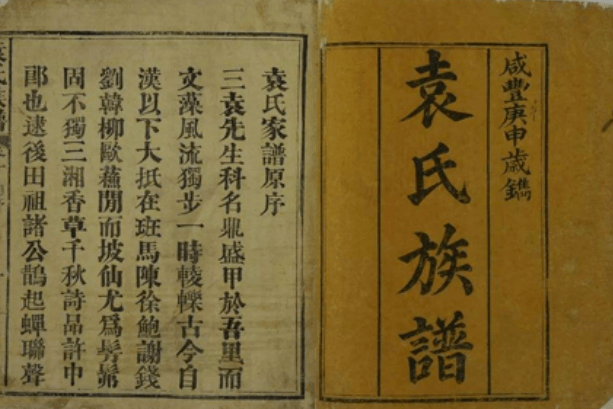 咸豐庚申歲鐫
袁氏族譜
袁氏家譜原序
三袁先生科名鼎盛甲於吾里而
文藻風流獨步一時輘轢古今自
漢以下大抵在班馬陳徐鮑謝錢
劉韓柳歐蘇間而坡仙尤爲髣髴
固不獨三湘香草千秋詩品許中
郎也逮後田祖諸公鵲起蟬聯聲